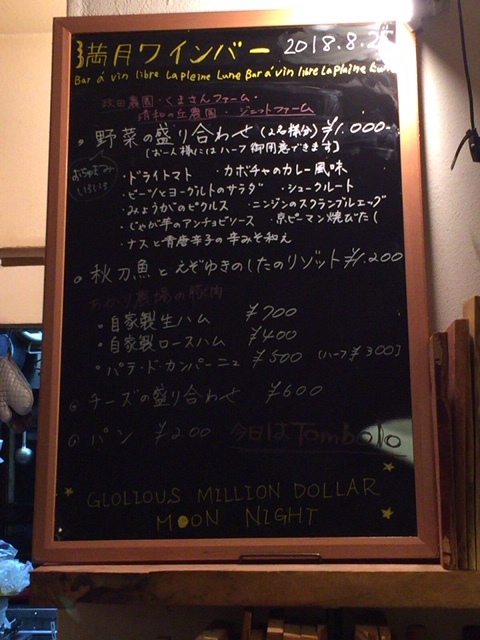 満月ワインバー 2018.8.25
Bar á vin libre La pleine Lune Bar á vin libre La pleine Lune
農園・くまさんファーム・
清和の丘農園・ジュットファーム
・野菜の盛り合わせ(2名様分)¥1.000-
(お一人様にはハーフ御用意できます)
おつまみ
いろいろ
・ドライトマト ・カボチャのカレー風味
・ビーツとヨーグルトのサラダ ・シュークルート
・みょうがのピクルス ・ニンジンのスクランブルエッグ
・じゃが芋のアンチョビソース ・京ピーマン焼びたし
・ナスと青唐辛子の辛みそ和え
・秋刀魚とえぞゆきのしたのリゾット ¥1.200
農場の豚肉
・自家製生ハム ¥700
・自家製ロースハム ¥400
・パテ・ド・カンパーニュ ¥500 (ハーフ¥300)
チーズの盛り合わせ ¥600
パン ¥200 今日はTombolo
GLOLIOUS MILLION DOLLAR
MOON NIGHT